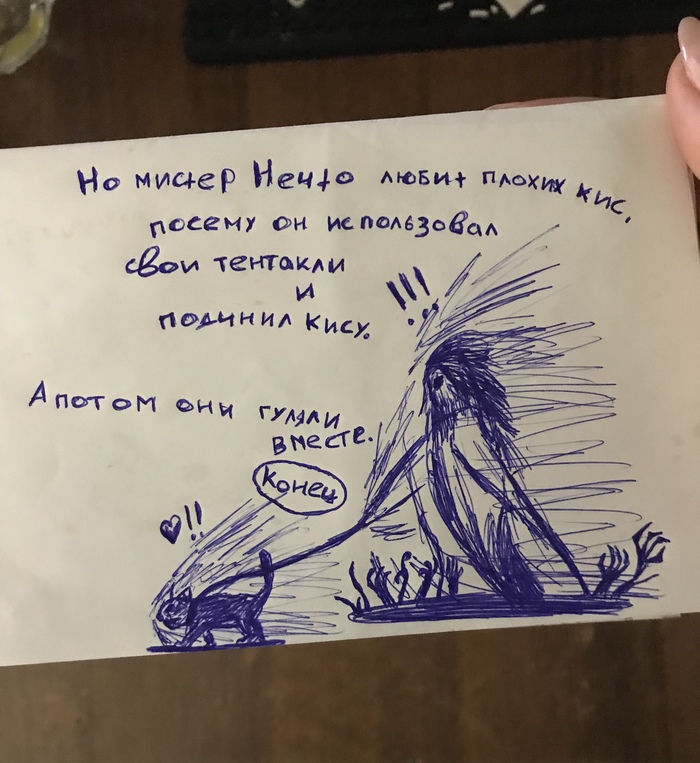 Но мистер Нечто любит плохих кис,
посему он использовал
свои тентакли
и
подчинил кису.
!!!
А потом они гуляли
вместе.
Конец
♥!!